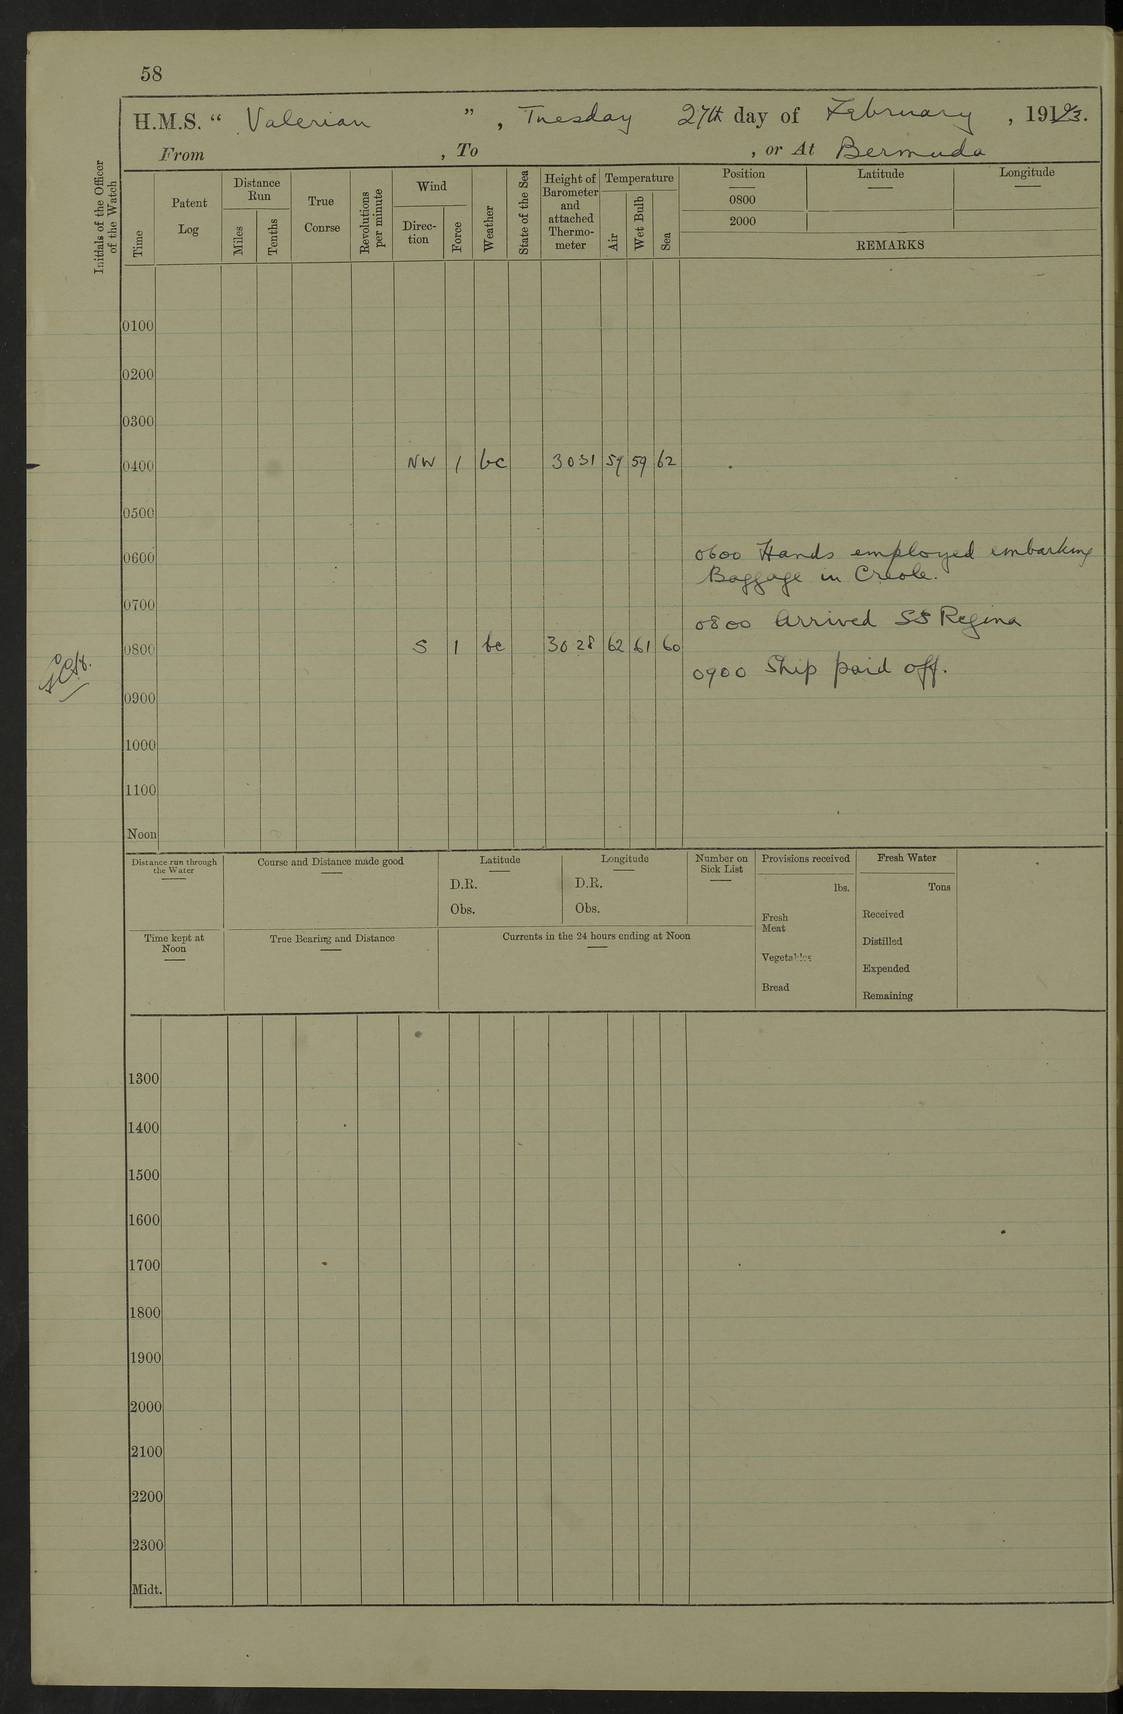 58
H.M.S. “ Valerian ” , Tuesday 27th day of February , 1923.
From , To , or At Bermuda
Initials of the Officer of the Watch
Time
Patent Log
Distance Run
Miles
Tenths
True Course
Revolutions per minute
Wind
Direc- tion
Force
Weather
State of the Sea
Height of Barometer and attached Thermo- meter
Temperature
Air
Wet Bulb
Sea
Position Latitude Longitude
0800
2000
REMARKS
0100
0200
0300
0400 NW 1 bc 3031 59 59 62
0500
0600 0600 Hands employed embarking
Baggage in Creole.
0700
0800 Arrived SS Regina
0800 S 1 bc 3028 62 61 60
0900 Ship paid off.
0900
1000
1100
Noon
Distance run through the Water
Course and Distance made good
Latitude
D.R.
Obs.
Longitude
D.R.
Obs.
Number on Sick List
Provisions received
lbs.
Fresh Meat
Vegetables
Bread
Fresh Water
Tons
Received
Distilled
Expended
Remaining
Time kept at Noon
True Bearing and Distance
Currents in the 24 hours ending at Noon
1300
1400
1500
1600
1700
1800
1900
2000
2100
2200
2300
Midt.